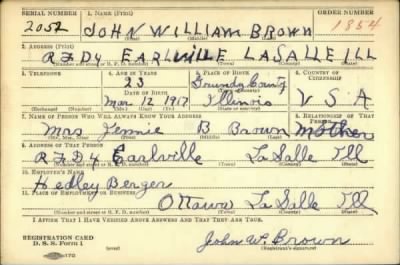 SERIAL NUMBER 1. NAME (Print) ORDER NUMBER
2057 JOHN WILLIAM BROWN 1854
(First) (Middle) (Last)
2. ADDRESS (Print)
R F D 4 EARLVILLE LASALLE ILL
(Number and street or R. F. D. number) (Town) (County) (State)
3. TELEPHONE 4. AGE IN YEARS 5. PLACE OF BIRTH 6. COUNTRY OF CITIZENSHIP
23 Grundy County
DATE OF BIRTH (Town or county)
Mar 12 1917 Illinois U S A
(Exchange) (Number) (Mo.) (Day) (Yr.) (State or country)
7. NAME OF PERSON WHO WILL ALWAYS KNOW YOUR ADDRESS 8. RELATIONSHIP OF THAT PERSON
Mrs Jennie B Brown Mother
(Mr., Mrs., Miss) (First) (Middle) (Last)
9. ADDRESS OF THAT PERSON
R F D 4 Earlville La Salle Ill
(Number and street or R. F. D. number) (Town) (County) (State)
10. EMPLOYER'S NAME
Hedley Berger
11. PLACE OF EMPLOYMENT OR BUSINESS
Ottawa La Salle Ill
(Number and street or R. F. D. number) (Town) (County) (State)
I AFFIRM THAT I HAVE VERIFIED ABOVE ANSWERS AND THAT THEY ARE TRUE.
REGISTRATION CARD
D. S. S. Form 1 (over) John W. Brown
(Registrant's signature)